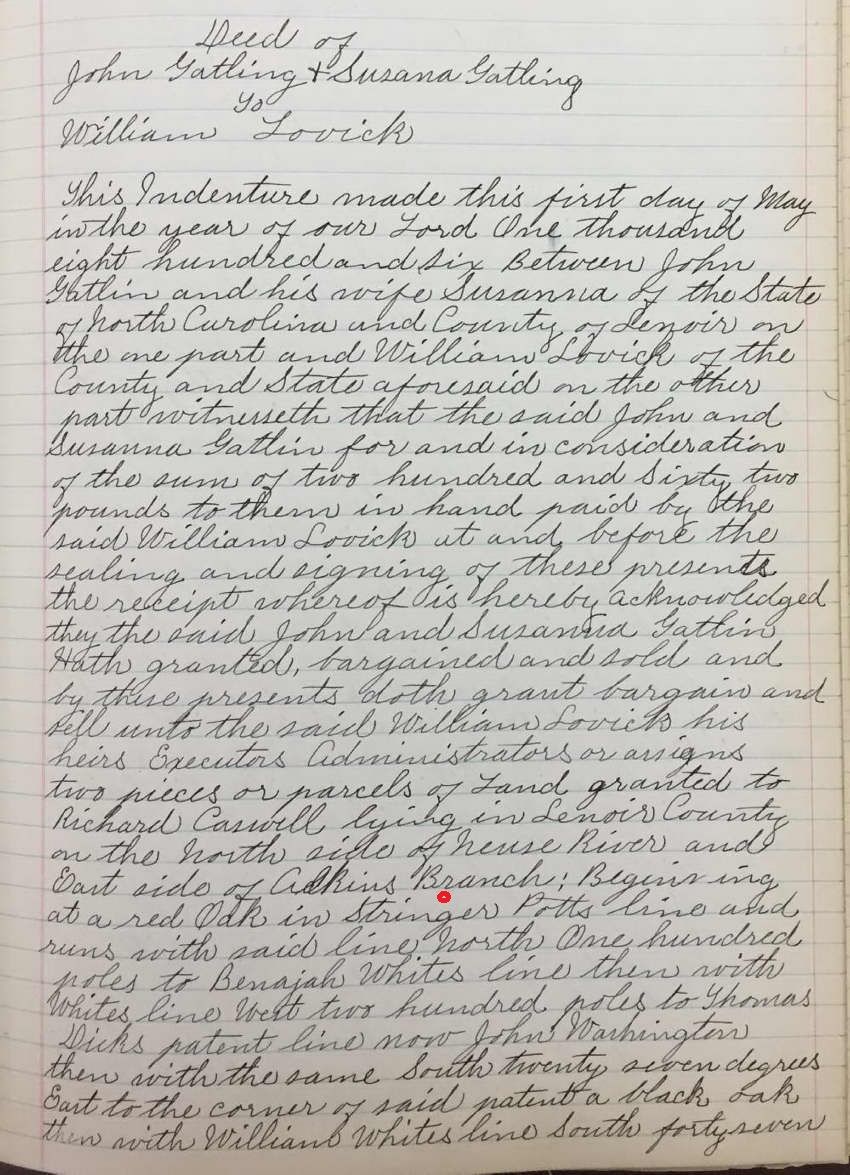 Deed of
John Gatling + Suzana Gatling
To
William Lovick
This Indenture made this first day of May
in the year of our Lord One thousand
eight hundred and six Between John
Gatlin and his wife Susanna of the State
of North Carolina and County of Lenoir on
the one part and William Lovick of the
County and State aforesaid on the other
part witnesseth that the said John and
Susanna Gatlin for and in consideration
of the sum of two hundred and Sixty two
pounds to them in hand paid by the
said William Lovick at and before the
sealing and signing of these presents
the receipt whereof is hereby acknowledged
they the said John and Susanna Gatlin
Hath granted, bargained and sold and
by these presents doth grant bargain and
sell unto the said William Lovick his
heirs Executors Administrators or assigns
two pieces or parcels of Land granted to
Richard Caswell lying in Lenoir County
on the North side of Neuse River and
East side of Adkins Branch; Beginning
at a red Oak in Stringer Potts line and
runs with said line North One hundred
poles to Benajah Whites line then with
Whites line West two hundred poles to Thomas
Dicks patent line now John Washington
then with the same South twenty seven degrees
East to the corner of said patent a black oak
then with William Whites line South forty seven